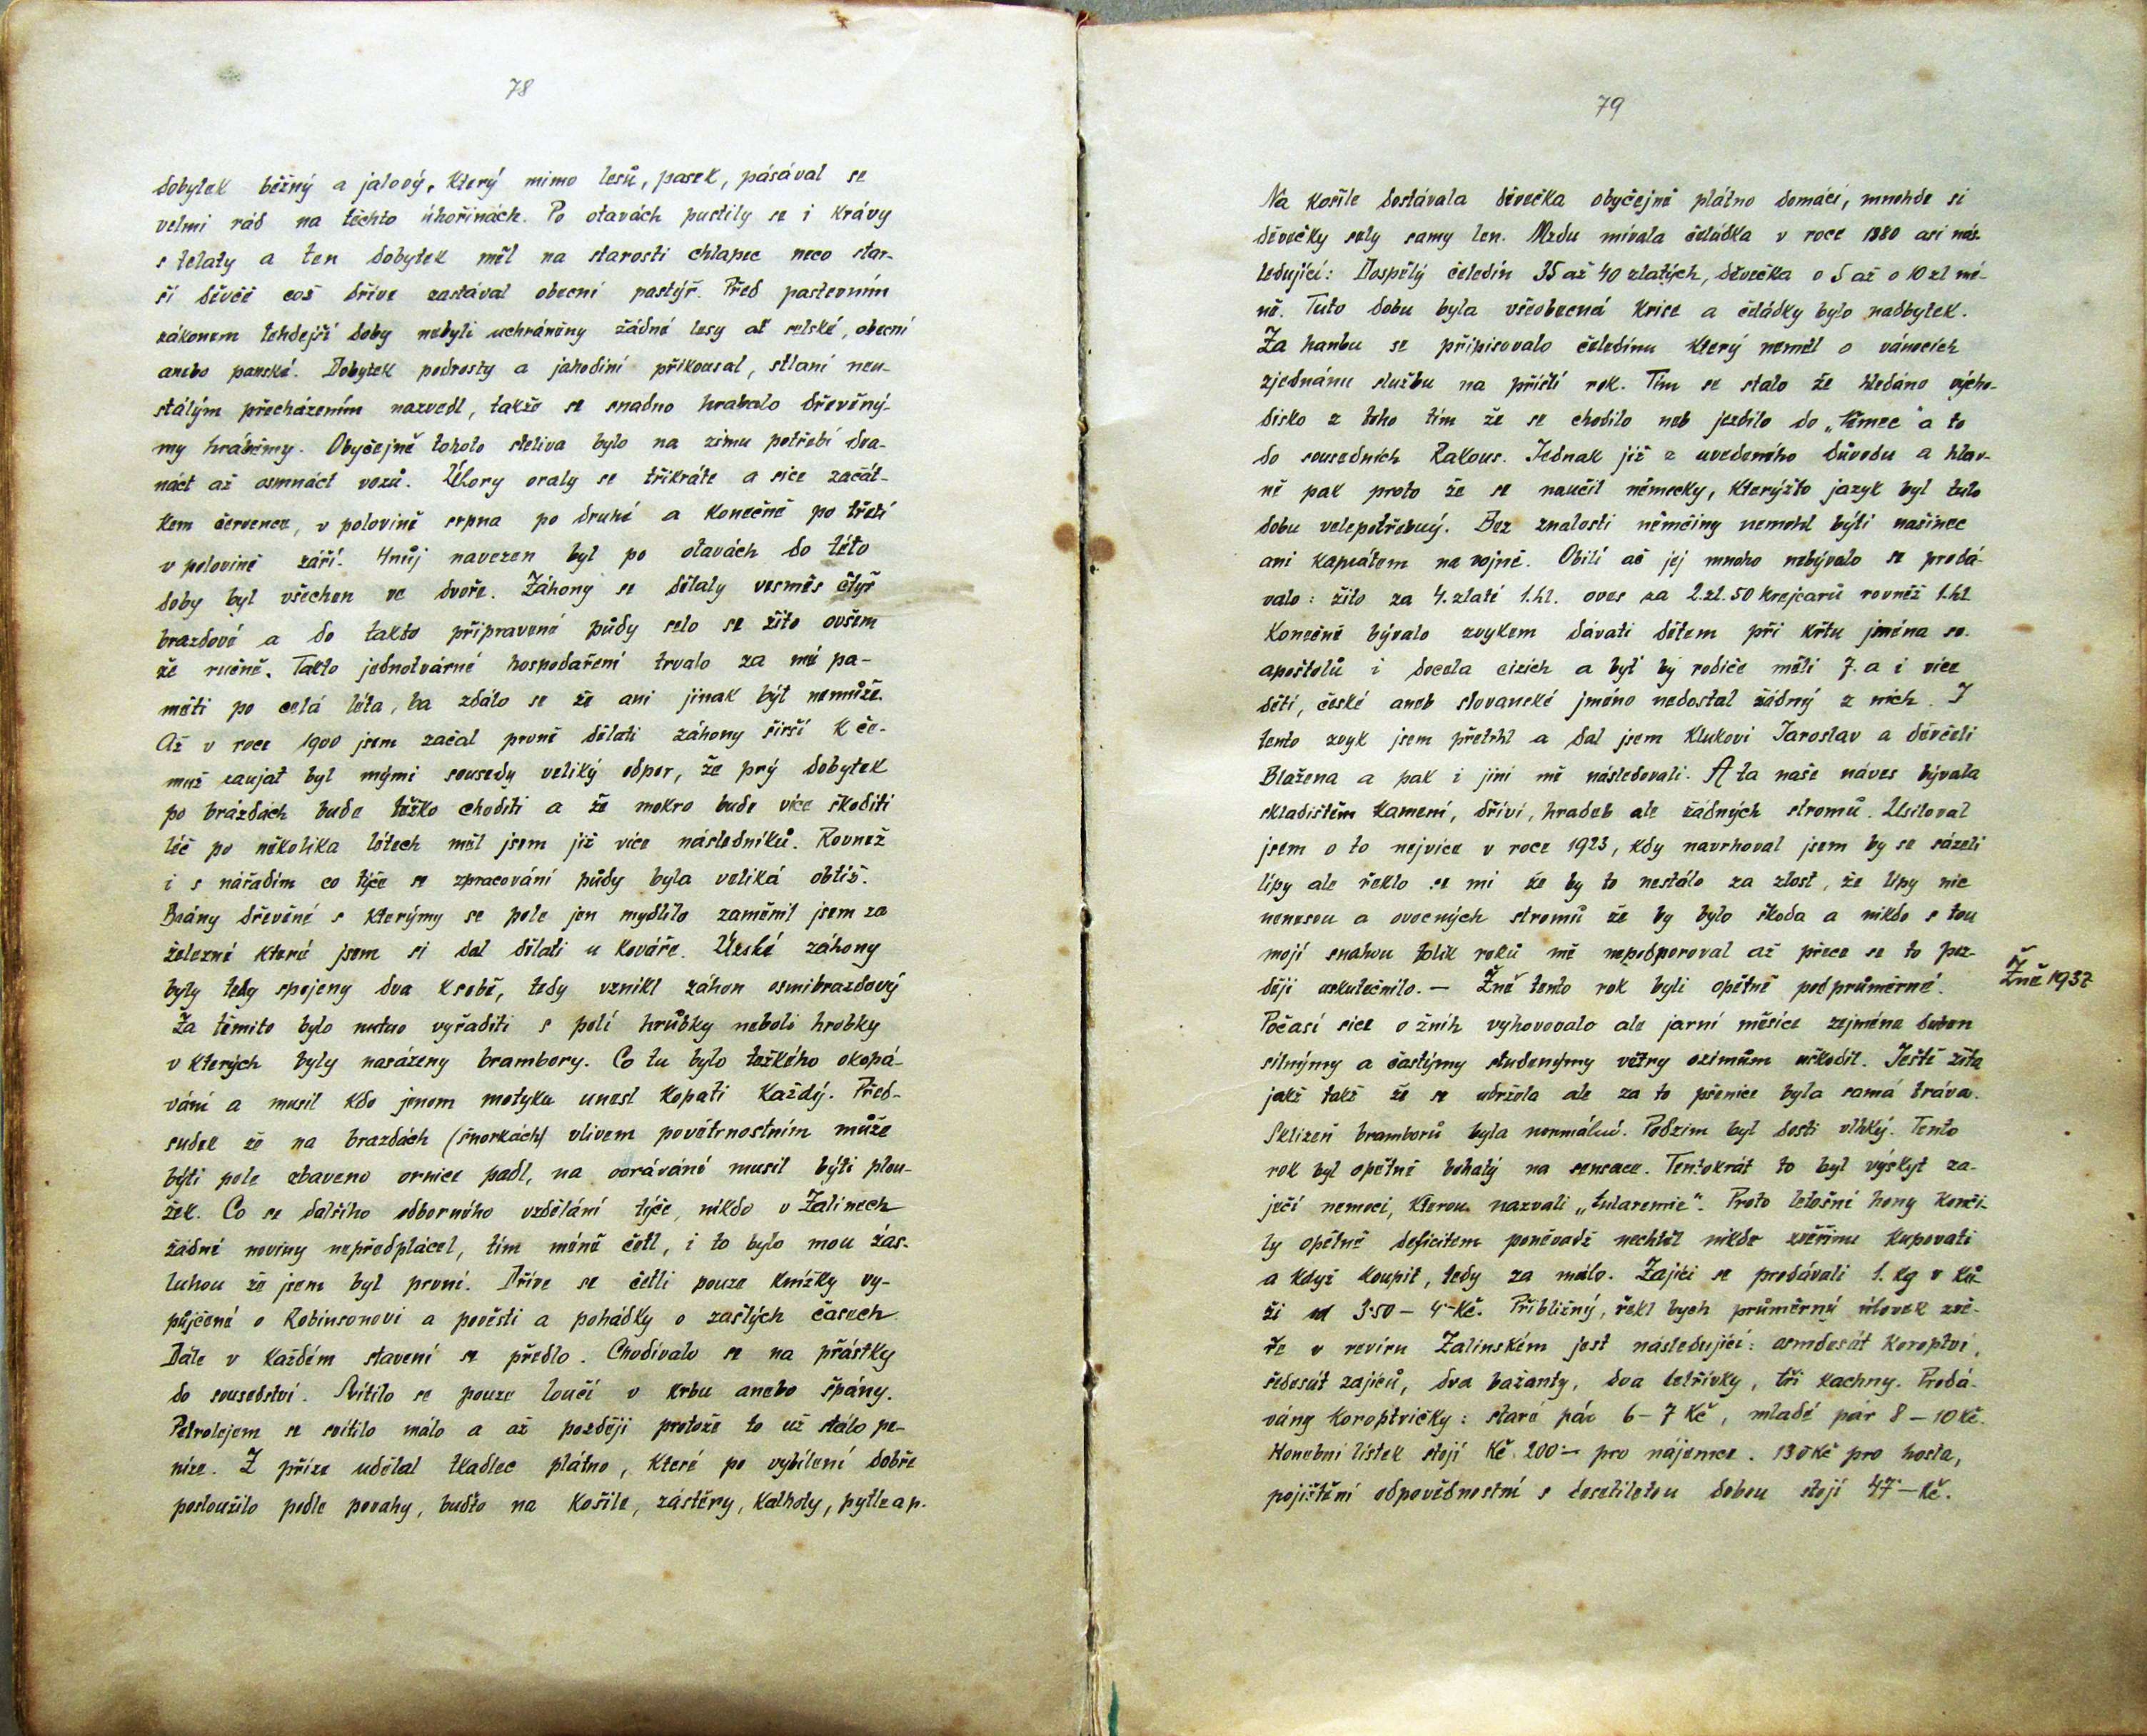 78
dobytek běžný a jalový, který mimo lesů, pasek, pásával se
velmi rád na těchto úhořinách. Po otavách pustily se i krávy
s telaty a ten dobytek měl na starosti chlapec neco star-
ší děvče což dříve zastával obecní pastýř. Před pastevním
zákonem tehdejší doby nebyli uchráněny žádné lesy ať selské, obecní
anebo panské. Dobytek podrosty a jahodiní přikousal, stlaní neu-
stálým přecházením nazvedl, takže se snadno hrabalo dřevěný-
my hráběmy. Obyčejně tohoto steliva bylo na zimu potřebí dva-
náct až osmnáct vozů. Úhory oraly se třikráte a sice začát-
kem července, v polovině srpna po druhé a konečně po třetí
v polovině září. Hnůj navezen byl po otavách do této
doby byl všechen ve dvoře. Záhony se dělaly vesměs čtyř
brazdové a do takto připravené půdy selo se žito ovšem
že ručně. Takto jednotvárné hospodaření trvalo za mé pa-
měti po celá léta, ba zdálo se že ani jinak být nemůže.
Až v roce 1900 jsem začal prvně dělati záhony širší k če-
muž zaujat byl mými sousedy veliký odpor, že prý dobytek
po brázdách bude těžko choditi a že mokro bude více škoditi
léč po několika létech měl jsem již více následníků. Rovnež
i s nářadím co týče se zpracování půdy byla veliká obtíž.
Brány dřevěné s kterýmy se pole jen mydlilo zaměnil jsem za
železné které jsem si dal dělati u kováře. Úzské záhony
byly tedy spojeny dva k sobě, tedy vznikl záhon osmibrazdový
Za těmito bylo nutno vyřaditi s polí hrůbky neboli hrobky
v kterých byly nasázeny brambory. Co tu bylo težkého okopá-
vání a musil kdo jenom motyku unesl kopati každý. Před-
sudek že na brazdách (šnorkách) vlivem povětrnostním může
býti pole zbaveno ornice padl, na oorávání musil býti plou-
žek. Co se dalšího odborného vzdělání týče, nikdo v Zalinech
žádné noviny nepředplácel, tím méně četl, i to bylo mou zás-
luhou že jsem byl první. Dříve se četli pouze knížky vy-
půjčené o Robinsonovi a pověsti a pohádky o zašlých časech.
Dále v každém stavení se předlo. Chodívalo se na přástky
do sousedství. Svítilo se pouze loučí v krbu anebo špány.
Petrolejem se svítilo málo a až později protože to už stálo pe-
níze. Z příze udělal tkadlec plátno, které po vybílení dobře
posloužilo podle povahy, buďto na košile, zástěry, kalhoty, pytle a p.
79
Na košile dostávala děvečka obyčejně plátno domácí, mnohde si
děvečky sely samy len. Mzdu mívala čeládka v roce 1880 asi nás-
ledující: Dospělý čeledín 35 až 40 zlatých, děvečka o 5 až o 10 zl mé-
ně. Tuto dobu byla všeobecná krise a čeládky bylo nadbytek.
Za hanbu se připisovalo čeledínu který neměl o vánocích
zjednánu službu na příští rok. Tím se stalo že hledáno výcho-
disko z toho tím že se chodilo neb jezdilo do „Němec" a to
do sousedních Rakous. Jednak již z uvedeného důvodu a hlav-
ně pak proto že se naučil německy, kterýžto jazyk byl tuto
dobu velepotřebný. Bez znalosti němčiny nemohl býti našinec
ani kaprálem na vojně. Obilí ač jej mnoho nebývalo se prodá-
valo: žito za 4. zlaté 1. hl. oves za 2. zl. 50 krejcarů rovněž 1. hl.
Konečně bývalo zvykem dávati dětem při křtu jména sv.
apoštolů i docela cizích a byť by rodiče měli 7. a i více
dětí, české aneb slovanské jméno nedostal žádný z nich. I
tento zvyk jsem přetrhl a dal jsem klukovi Jaroslav a děvčeti
Blažena a pak i jiní mě následovali. A ta naše náves bývala
skladištěm kamení, dříví, hradeb ale žádných stromů. Usiloval
jsem o to nejvíce v roce 1923, kdy navrhoval jsem by se sázeli
lípy ale řeklo se mi že by to nestálo za zlost, že lípy nic
nenesou a ovocných stromů že by bylo škoda a nikdo s tou
mojí snahou tolik roků mě nepodporoval až přece se to poz-
ději uskutečnilo. — Žně tento rok byli opětně podprůměrné.
Žně 1937
Počasí sice o žních vyhovovalo ale jarní měsíce zejména duben
silnýmy a častýmy studenýmy větry ozimům uškodil. Ještě žita
jakž takž že se udržela ale za to pšenice byla samá tráva.
Sklizeň bramborů byla normální. Podzim byl dosti vlhký. Tento
rok byl opětně bohatý na sensace. Tentokrát to byl výskyt za-
ječí nemoci, kterou nazvali „tularemie". Proto letošní hony konči-
ly opětně deficitem poněvadž nechtěl nikdo zvěřinu kupovati
a když koupil, tedy za málo. Zajíci se prodávali 1. kg v ků-
ži od 3·50 — 4·-Kč. Přibližný, řekl bych průměrný úlovek zvě-
ře v revíru Zalinském jest následující: osmdesát koroptví,
šedesát zajíců, dva bažanty, dva tetřívky, tři kachny. Prodá-
vány koroptvičky: staré pár 6 — 7 Kč, mladé pár 8 — 10 Kč.
Honební lístek stojí Kč 200·— pro nájemce. 130 Kč pro hosta,
pojištění odpovědnostní s desetiletou dobou stojí 47·— Kč.